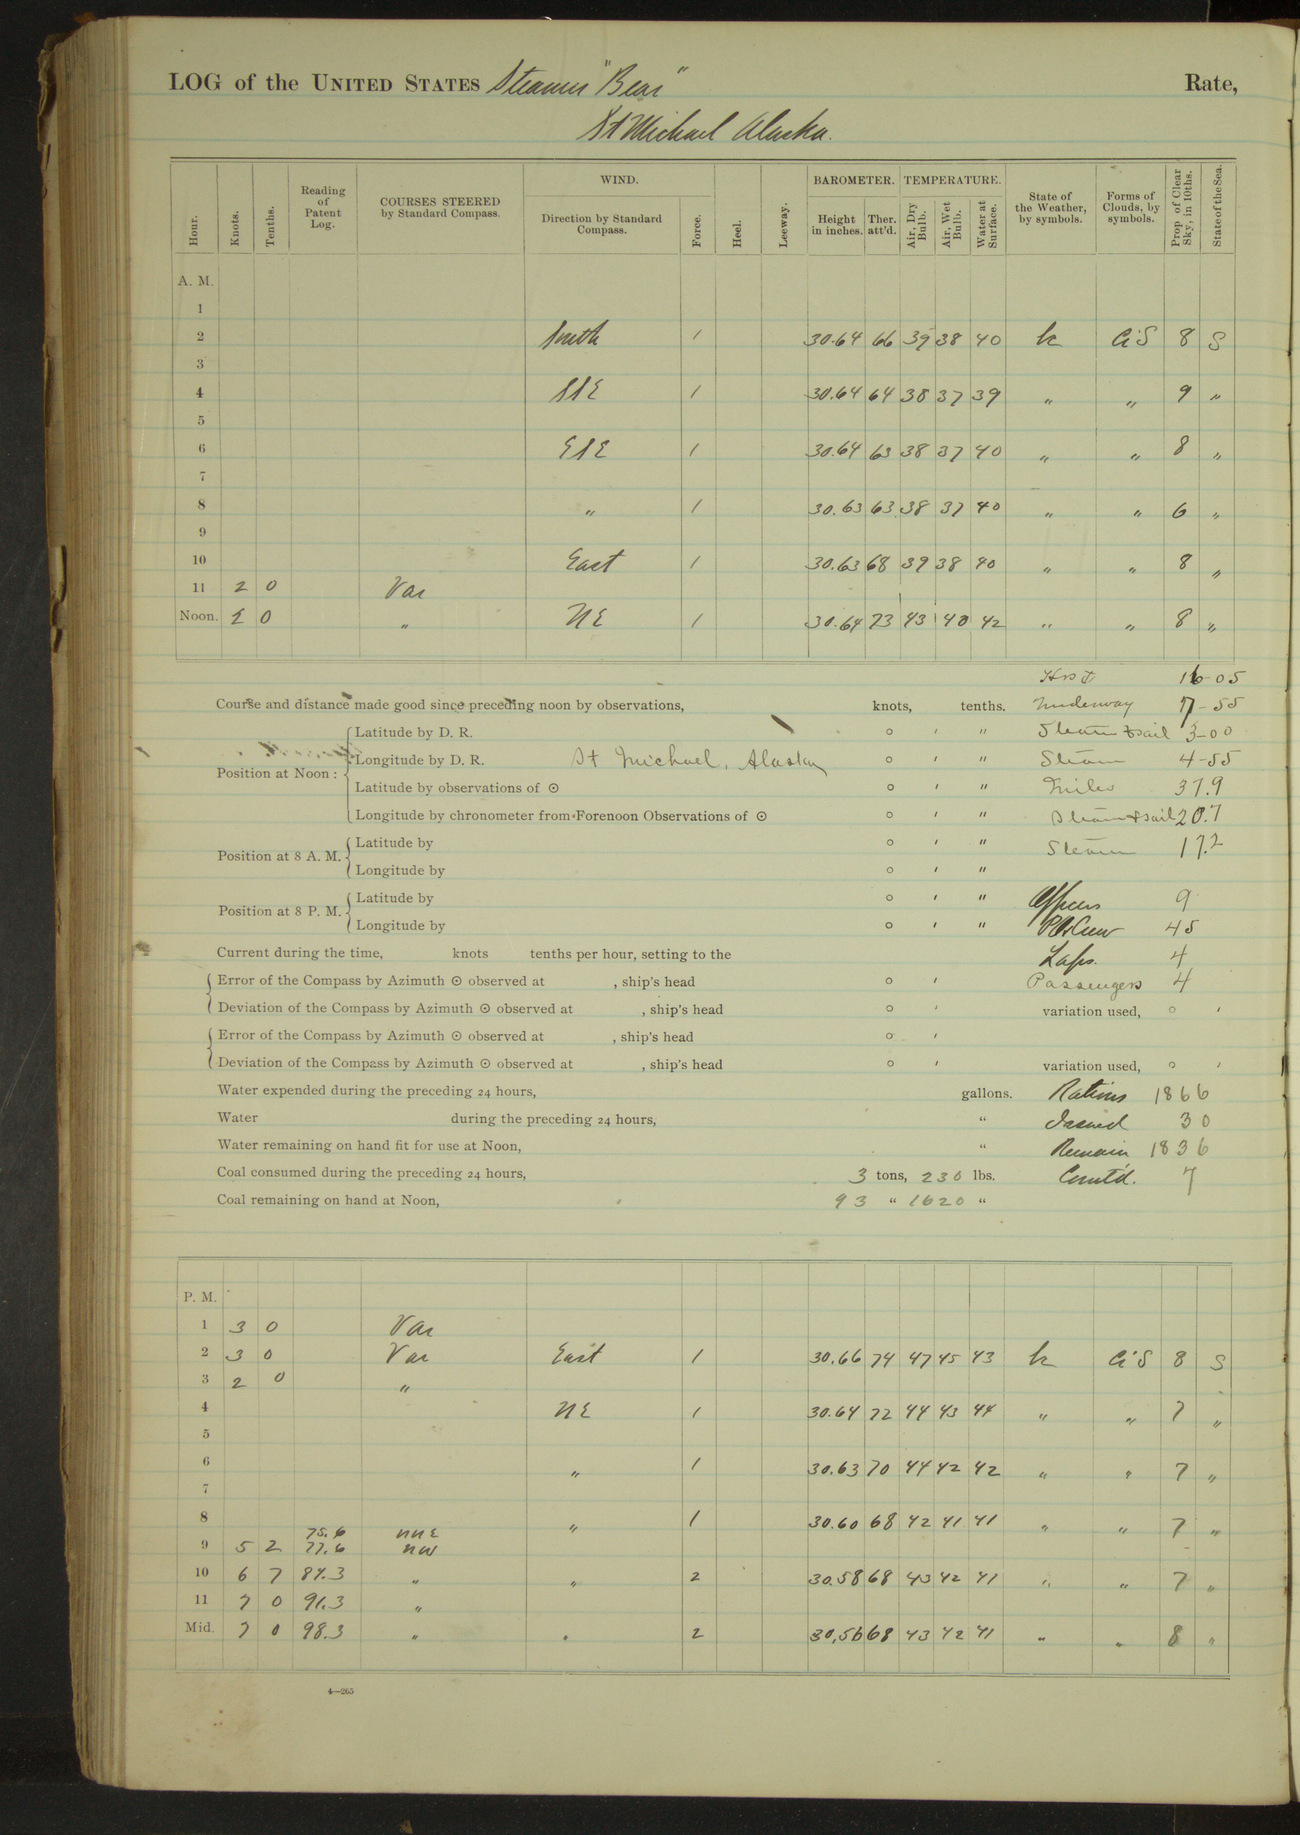 LOG of the UNITED STATES Steamer "Bear" Rate,
St Michael Alaska.
Hour. Knots. Tenths. Reading of Patent Log. COURSES STEERED by Standard Compass. WIND. Direction by Standard Compass. Force. Heel. Leeway. BAROMETER. Height in inches. Ther. att'd. TEMPERATURE. Air, Dry Bulb. Air, Wet Bulb. Water at Surface. State of the Weather, by symbols. Forms of Clouds, by symbols. Prop. of Clear Sky, in 10ths. State of the Sea.
A. M.
1
2 South 1 30.64 66 39 38 40 bc Ci S 8 S
3
4 SSE 1 30.64 64 38 37 39 " " 9 "
5
6 ESE 1 30.64 63 38 37 40 " " 8 "
7
8 " 1 30.63 63 38 37 40 " " 6 "
9
10 East 1 30.63 68 39 38 40 " " 8 "
11 2 0 Var
Noon. 2 0 " NE 1 30.64 73 43 40 42 " " 8 "
16-05
Course and distance made good since preceding noon by observations, knots, tenths. Underway 7-55
Latitude by D. R. ° ' " Steam & sail 3-00
Position at Noon: Longitude by D. R. St Michael, Alaska ° ' " Steam 4-55
Latitude by observations of ☉ ° ' " Miles 37.9
Longitude by chronometer from Forenoon Observations of ☉ ° ' " Steam & sail 20.7
Position at 8 A. M. Latitude by ° ' " Steam 17.2
Longitude by ° ' "
Position at 8 P. M. Latitude by ° ' " Officers 9
Longitude by ° ' " Crew 45
Current during the time, knots tenths per hour, setting to the Laps. 4
Error of the Compass by Azimuth ☉ observed at , ship's head ° ' Passengers 4
Deviation of the Compass by Azimuth ☉ observed at , ship's head ° ' variation used, ° '
Error of the Compass by Azimuth ☉ observed at , ship's head ° '
Deviation of the Compass by Azimuth ☉ observed at , ship's head ° ' variation used, ° '
Water expended during the preceding 24 hours, gallons. Rations 1866
Water during the preceding 24 hours, " Issued 30
Water remaining on hand fit for use at Noon, " Remain 1836
Coal consumed during the preceding 24 hours, 3 tons, 230 lbs. Comt'd. 7
Coal remaining on hand at Noon, 93 " 1620 "
P. M.
1 3 0 Var
2 3 0 Var East 1 30.66 74 47 45 43 bc Ci S 8 S
3 2 0 "
4 NE 1 30.64 72 44 43 44 " " 7 "
5
6 " 1 30.63 70 44 42 42 " " 7 "
7
8 " 1 30.60 68 42 41 41 " " 7 "
75.6 NNE
9 5 2 77.6 NW
10 6 7 84.3 " " 2 30.58 68 43 42 41 " " 7 "
11 7 0 91.3 "
Mid. 7 0 98.3 " " 2 30.56 68 43 42 41 " " 8 "
4—265